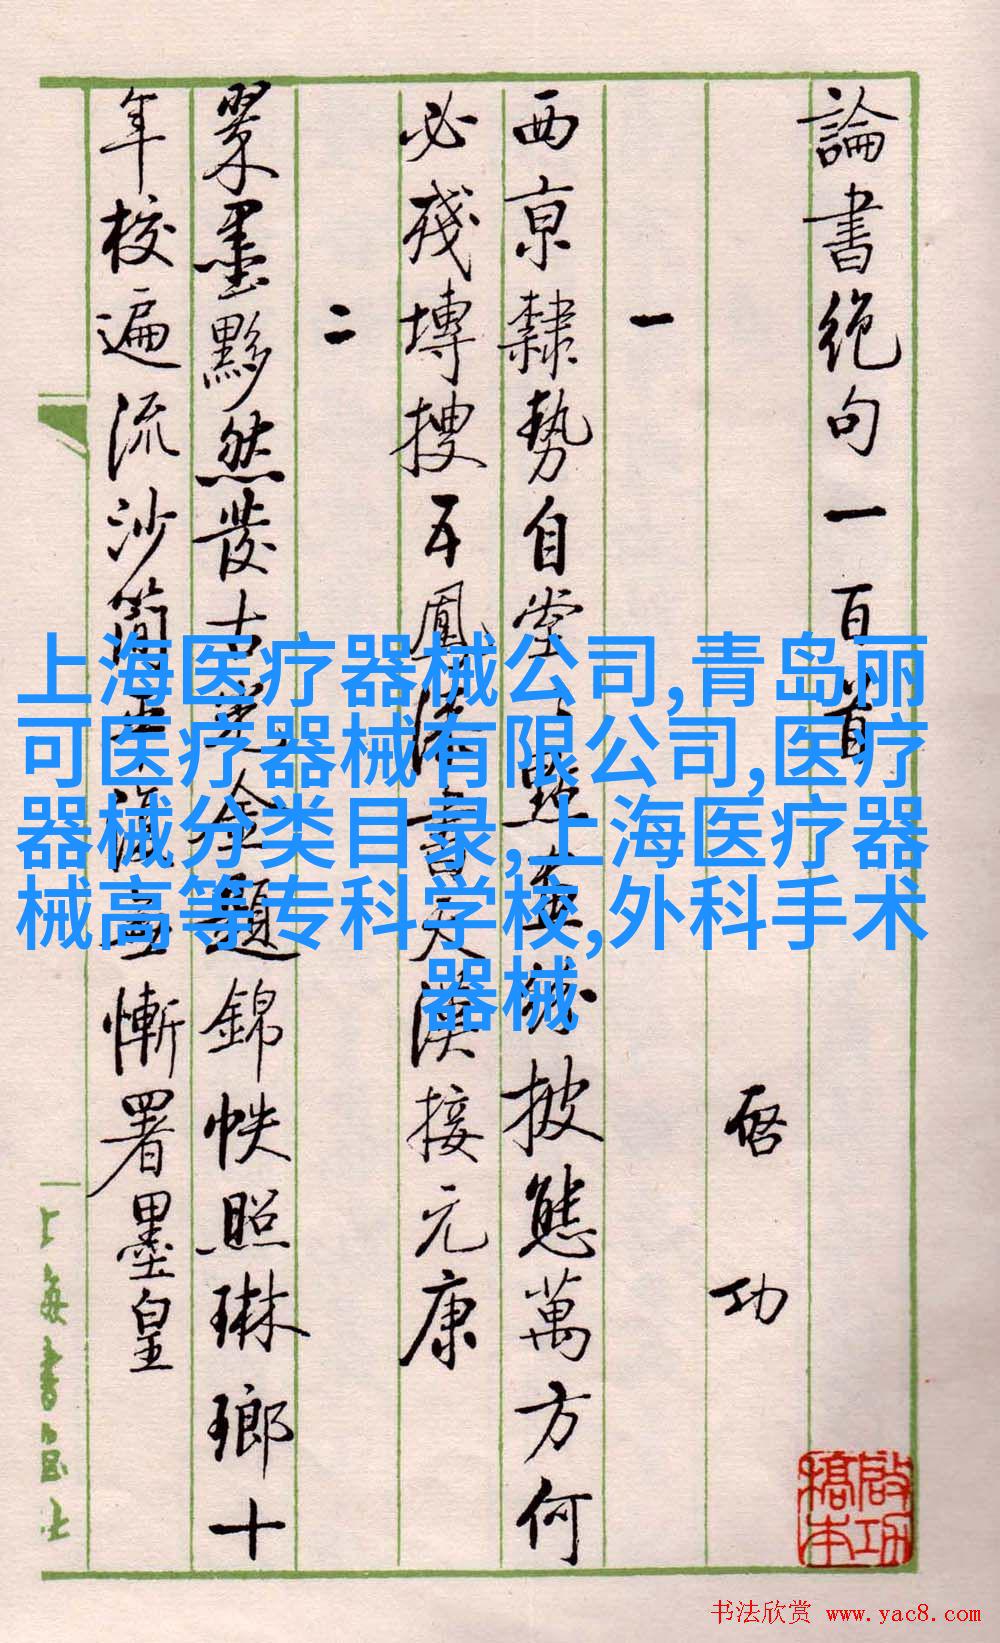 論書絕句一百首
啓功
一
西京隸勢自堂々點畫紛披態萬方何
必殘塼搜五鳳漆書天漢接元康
二
翠墨黟然發古光金題錦帙照琳瑯十
年校遍流沙簡平復無慚署墨皇
上海医疗器械公司,青岛丽
可医疗器械有限公司,医疗
器械分类目录,上海医疗器
械高等专科学校,外科手术
器械
书法欣赏 www.yac8.com